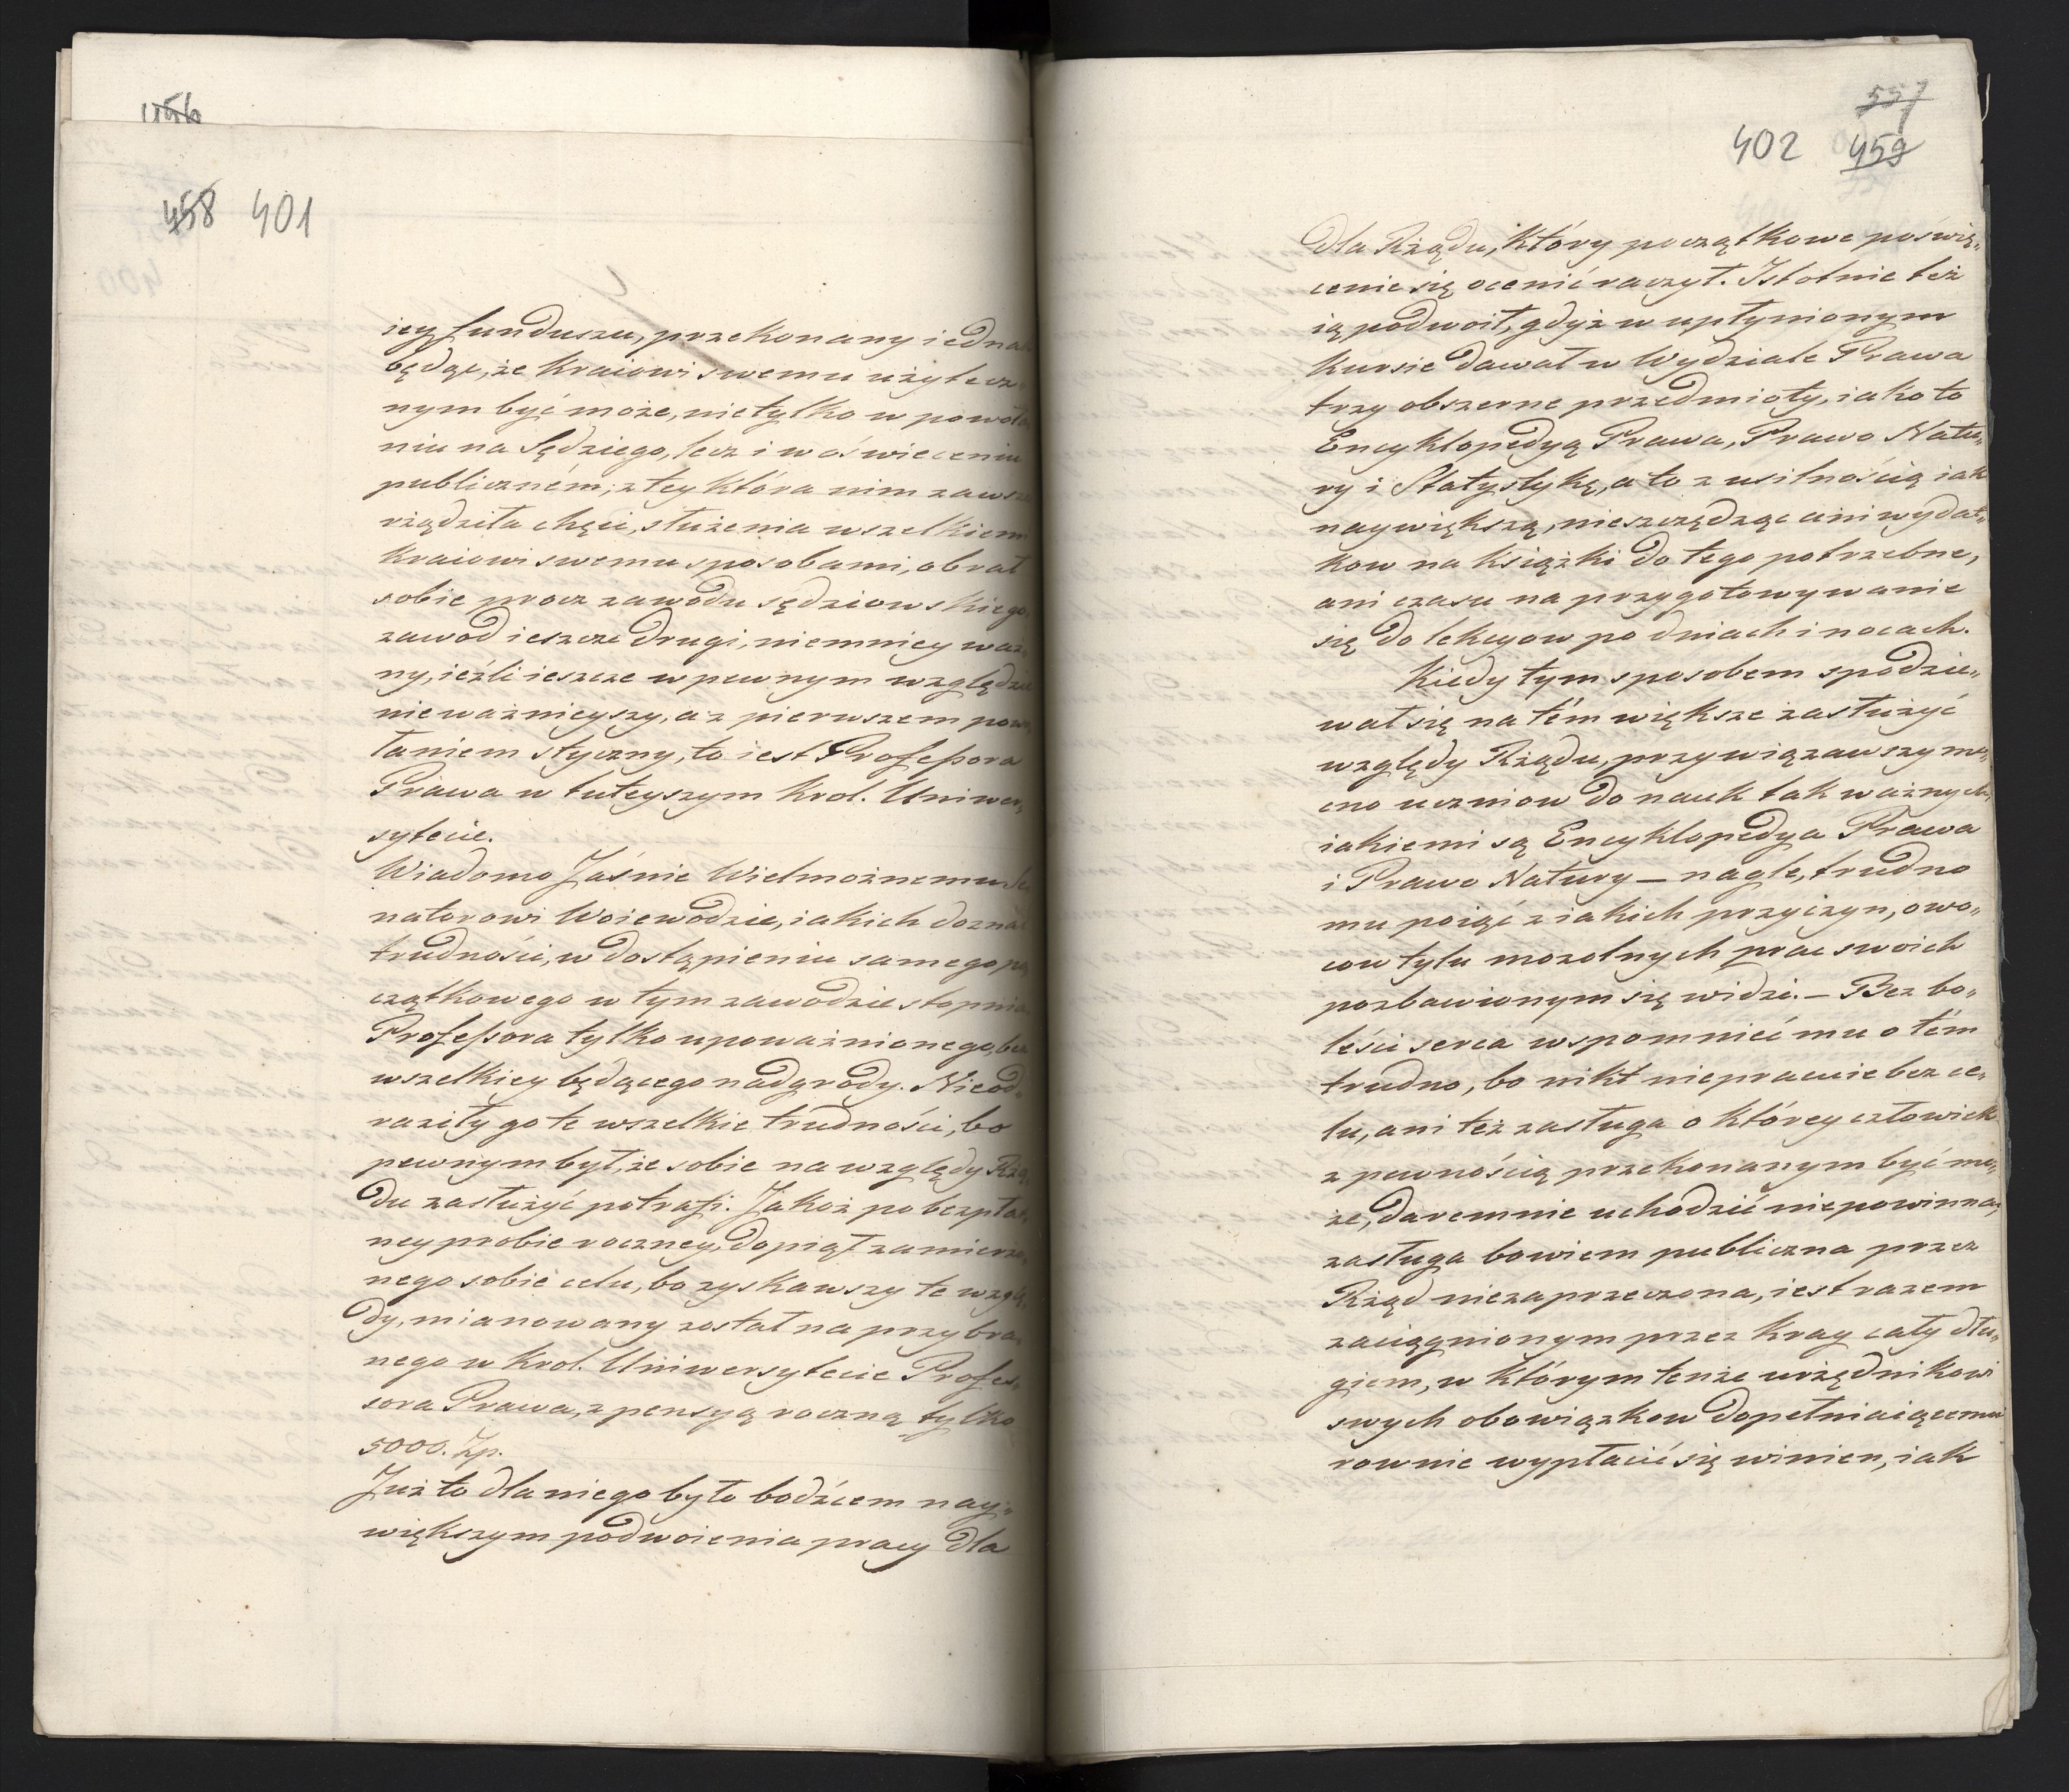 456
458 401
iey funduszu, przekonany iedna
będąc, że Kraiowi swemu użytecz„
nym być może, nietylko w powoła
niu na Sędziego, lecz i w oświeceniu
publiczném; z tey która nim zawsze
rządziła chęci, służenia wszelkiem
Kraiowi swemu sposobami, obrał
sobie procz zawodu sędziowskiego,
zawod ieszcze drugi, niemniey waż„
ny, ieźli ieszcze w pewnym względzie
nie ważnieyszy, a z pierwszem powo„
łaniem styczny, to iest Professora
Prawa w tuteyszym Krol. Uniwer„
sytecie.
Wiadomo Jaśnie Wielmożnemu Se
natorowi Woiewodzie, iakich doznał
trudności, w dostąpieniu samego po
czątkowego w tym zawodzie stopnia
Professora tylko upoważnionego, bez
wszelkiey będącego nadgrody. Nieod„
raziły go te wszelkie trudności, bo
pewnym był, że sobie na względy Rzą„
du zasłużyć potrafi. Jakoż po bezpłat„
ney probie roczney, dopiął zamierzo„
nego sobie celu, bo zyskawszy te wzglę„
dy, mianowany został na przybra„
nego w Krol. Uniwersytecie Profes„
sora Prawa, z pensyą roczną tylko
5000. Zp.
Już to dla niego było bodźcem nay„
większym podwoienia pracy dla
557
402 459
dla Rządu, który początkowe poświę„
cenie się ocenić raczył. Istotnie też
ią podwoił, gdyż w upłynionym
kursie dawał w Wydziale Prawa
trzy obszerne przedmioty, iako to
Encyklopedyą Prawa, Prawo Natu„
ry i Statystykę, a to z usilnością iak
naywiększą, nieszczędząc ani wydat„
kow na książki do tego potrzebne,
ani czasu na przygotowywanie
się do lekcyow po dniach i nocach.
Kiedy tym sposobem spodzie„
wał się na tém większe zasłużyć
względy Rządu, przywiązawszy mo„
cno uczniow do nauk tak ważnych,
iakiemi są Encyklopedya Prawa
i Prawo Natury — nagle, trudno
mu poiąć z iakich przyczyn, owo„
cow tylu mozolnych prac swoich
pozbawionym się widzi. — Bez bo„
leści serca wspomnieć mu o tém
trudno, bo nikt niepracuie bez ce„
lu, ani też zasługa o którey człowiek
z pewnością przekonanym być mo„
że, daremnie uchodzić niepowinna,
zasługa bowiem publiczna przez
Rząd niezaprzeczona, iest razem
zaciągnionym przez Kray cały dłu„
giem, w którym tenże urzędnikowi
swych obowiązkow dopełniaiącemu
rownie wypłacić się winien, iak